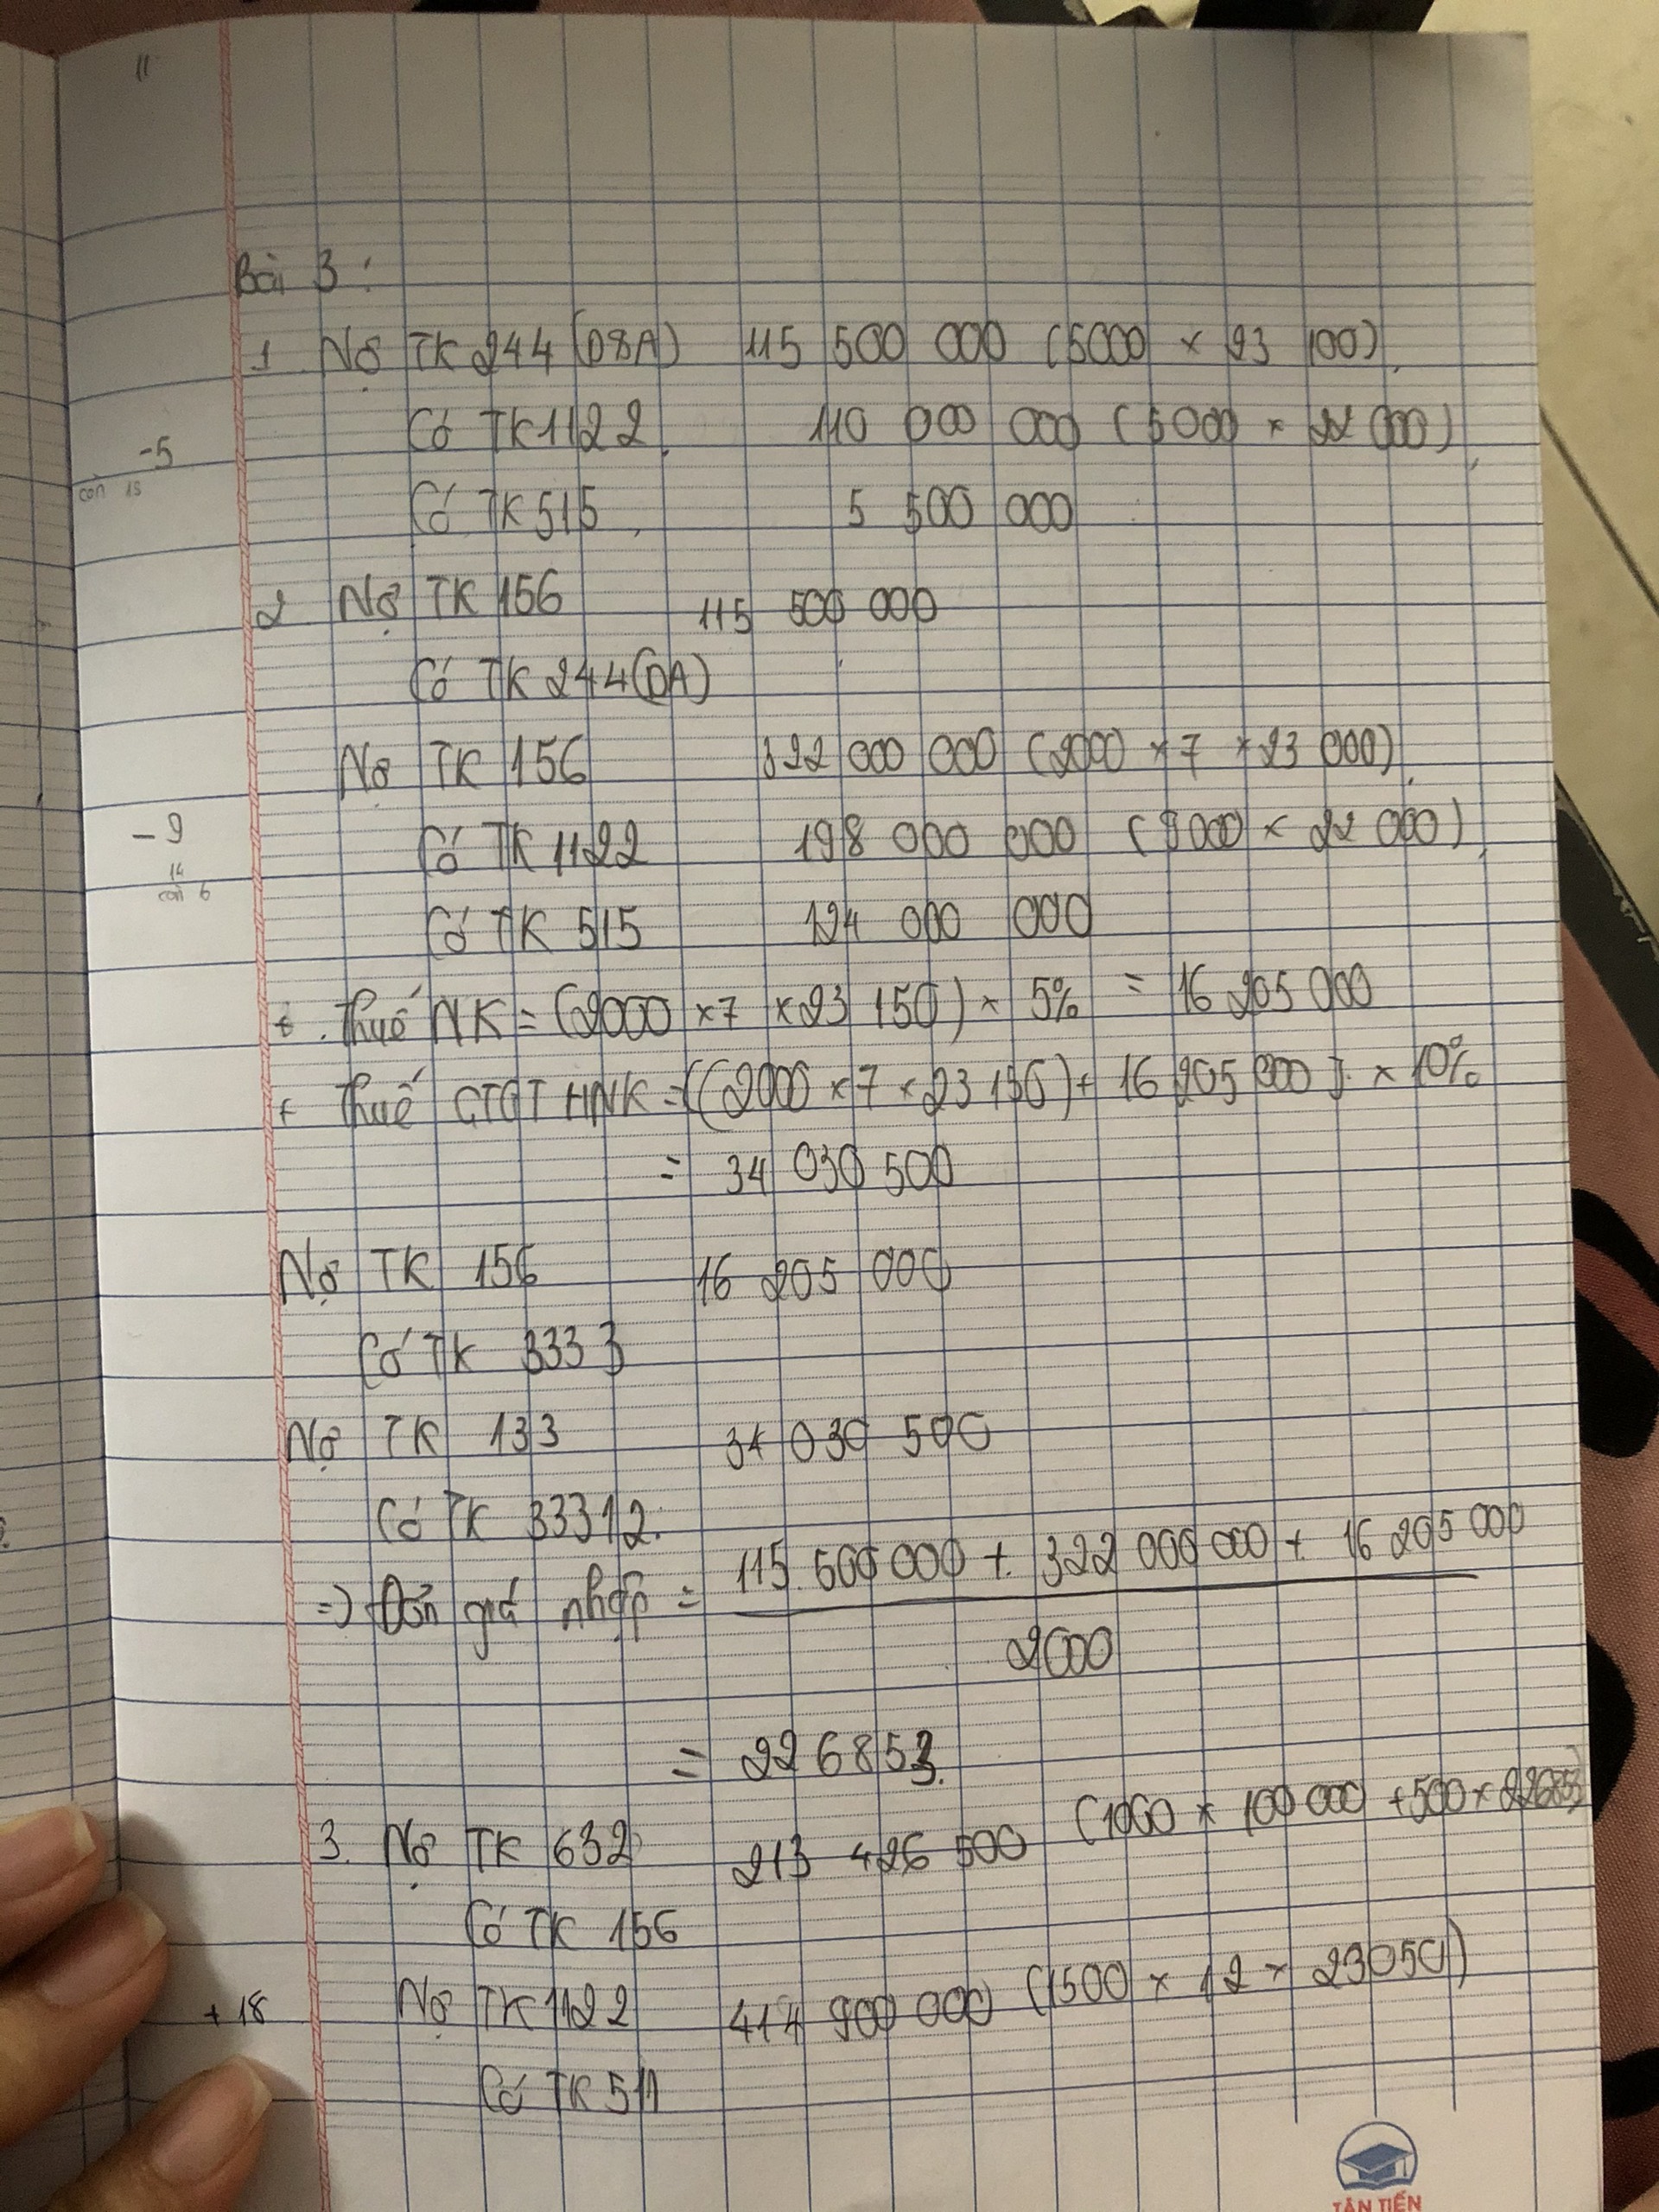 Bài 3 :
1 Nợ TK 244 (D8A) 115 500 000 (5000 × 23 100)
Có TK 1122 110 000 000 (5000 × 22 000)
-5
còn 15
Có TK 515 5 500 000
2 Nợ TK 156 115 500 000
Có TK 244 (DA)
Nợ TK 156 322 000 000 (2000 × 7 × 23 000)
- 9
14
còn 6
Có TK 1122 198 000 000 (9000 × 22 000)
Có TK 515 124 000 000
+ Thuế NK = (2000 × 7 × 23 150) × 5% = 16 205 000
+ Thuế GTGT HNK = ((2000 × 7 × 23 150) + 16 205 000) × 10%
= 34 030 500
Nợ TK 156 16 205 000
Có TK 3333
Nợ TK 133 34 030 500
Có TK 33312
115 500 000 + 322 000 000 + 16 205 000
=) Đơn giá nhập =
2000
= 226853
3. Nợ TK 632 213 426 500 (1000 × 100 000 + 500 × 226853)
Có TK 156
+ 18 Nợ TK 1122 414 900 000 (1500 × 12 × 23050)
Có TK 511
TÂN TIẾN